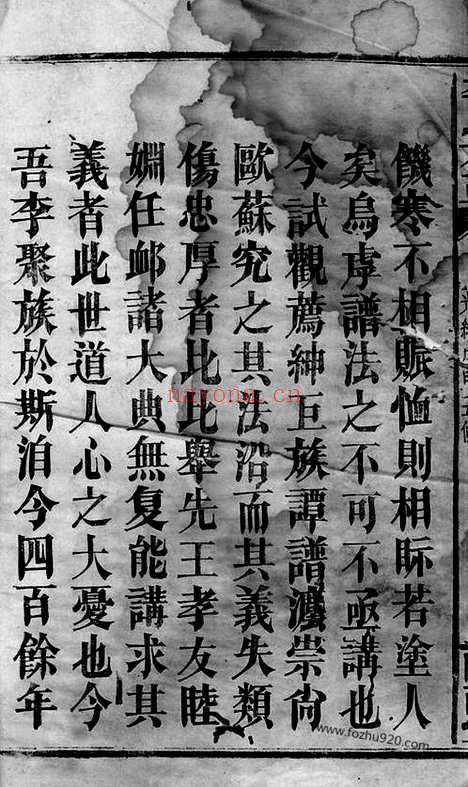 饑寒不相賑恤則相眎若塗人
矣烏虖譜法之不可不亟講也
今試觀薦紳巨族譚譜灋崇尙
歐蘇究之其法沿而其義失類
傷忠厚者比比舉先王孝友睦
婣任卹諸大典無复能講求其
義者此世道人心之大憂也今
吾李聚族於斯洎今四百餘年
nayong.cn
www.fozhu920.com